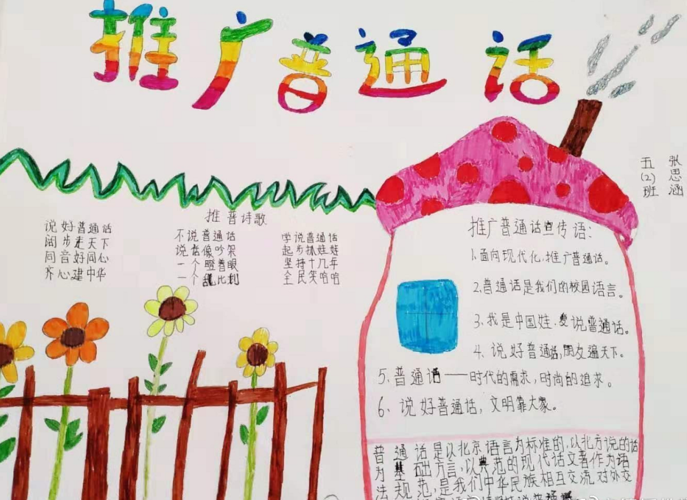 推广普通话
五(2)班
张思涵
推普诗歌
说好普通话
阔步走天下
同音好同心
齐心建中华
不说普通话
说话像吵架
一个瞪着眼
一个乱比利
学说普通话
起步抓娃娃
坚持十几年
全民笑哈哈
推广普通话宣传语:
1.面向现代化,推广普通话。
2.普通话是我们的校园语言。
3.我是中国娃,爱说普通话。
4.说好普通话,朋友遍天下。
5.普通话——时代的需求,时尚的追求。
6.说好普通话,文明靠大家。
普通话是以北京语言为标准的,以北方说的话
为基础方言,以典范的现代话文著作为语
法规范,是我们中华民族相互交流对外交